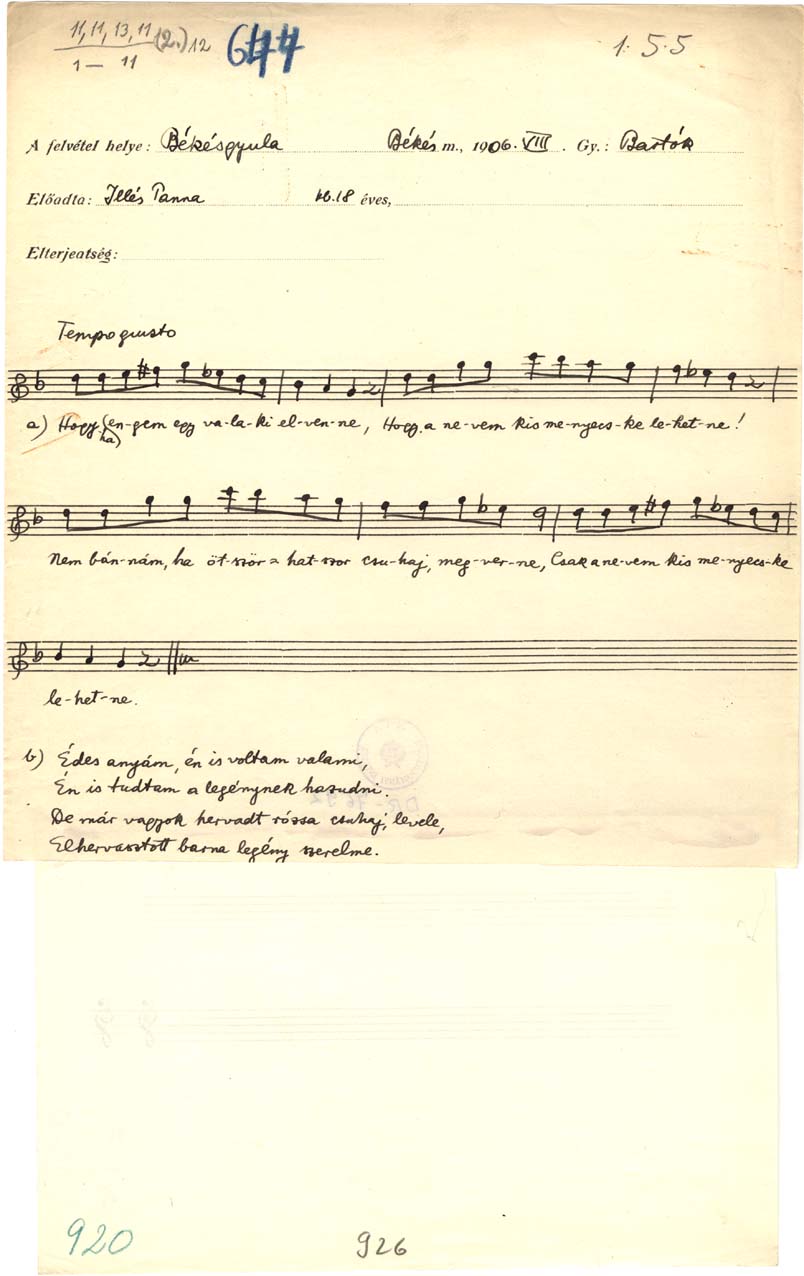 11, 11, 13, 11 (2.) 12
1 — 11
1. 5. 5
A felvétel helye: Békésgyula Békés m., 1906. VIII. Gy.: Bartók
Előadta: Illés Panna kb. 18 éves,
Elterjedtség:
Tempo giusto
a) Hogy (ha) en-gem egy va-la-ki el-ven-ne, Hogy a ne-vem kis me-nyecs-ke le-het-ne!
Nem bán-nám, ha öt-ször = hat-szor csu-haj, meg-ver-ne, Csak a ne-vem kis me-nyecs-ke
le-het-ne.
b) Édes anyám, én is voltam valami,
Én is tudtam a legénynek hazudni.
De már vagyok hervadt rózsa csuhaj, levele,
Elhervasztott barna legény szerelme.
920
926